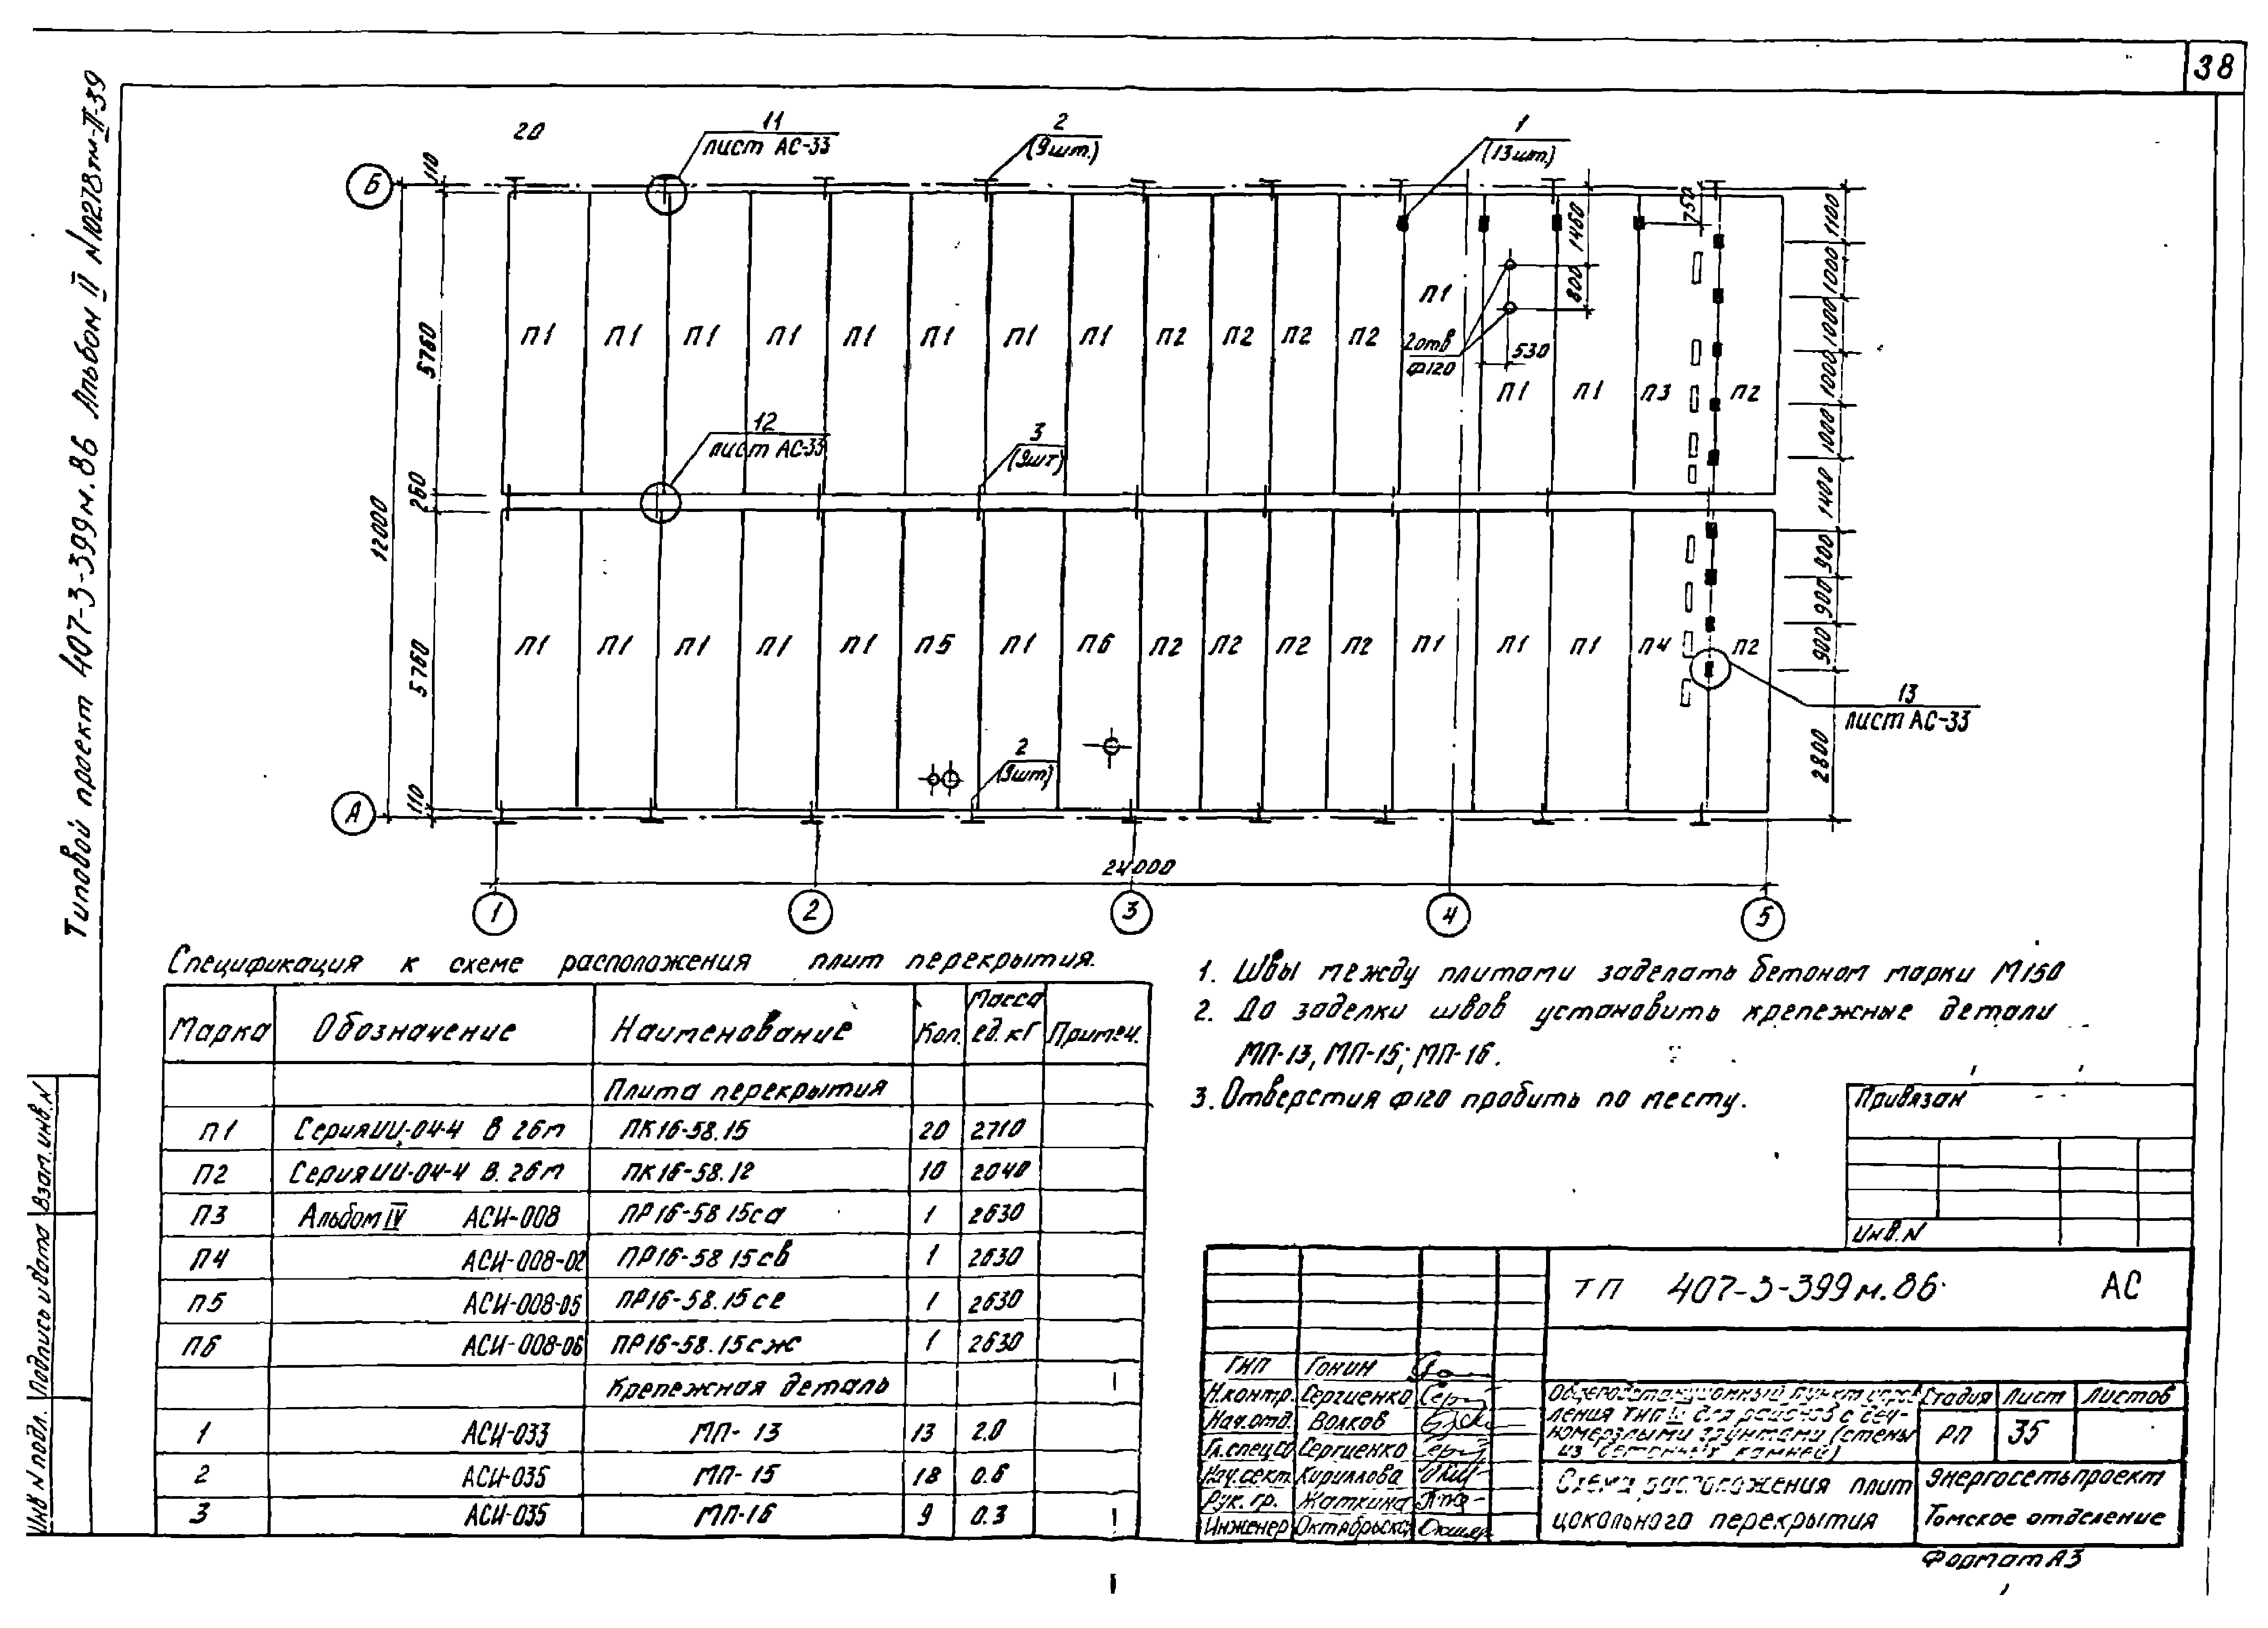 38
Типовой проект 407-3-399м.86 Альбом II N10278тм-II-39
20
11
лист АС-33
2
(9шт.)
1
(13шт.)
Б
110
5760
260
12000
5760
110
А
750
1460
800
530
2отв
Ф120
1100
1000
1000
1000
1000
1400
900
900
900
2800
П1 П1 П1 П1 П1 П1 П1 П1 П2 П2 П2 П2 П1 П1 П1 П3 П2
12
лист АС-33
3
(9шт)
П1 П1 П1 П1 П1 П5 П1 П6 П2 П2 П2 П2 П1 П1 П1 П4 П2
13
лист АС-33
2
(9шт)
24000
1 2 3 4 5
Спецификация к схеме расположения плит перекрытия.
Марка Обозначение Наименование Кол. Масса ед. кг Примеч.
Плита перекрытия
П1 Серия ИИ-04-4 В 26т ПК16-58.15 20 2710
П2 Серия ИИ-04-4 В. 26т ПК16-58.12 10 2040
П3 Альбом IV АСИ-008 ПР16-58 15са 1 2630
П4 АСИ-008-02 ПР16-58 15св 1 2630
П5 АСИ-008-05 ПР16-58.15се 1 2630
П6 АСИ-008-06 ПР16-58.15сж 1 2630
Крепежная деталь
1 АСИ-033 МП-13 13 2.0
2 АСИ-035 МП-15 18 0.6
3 АСИ-035 МП-16 9 0.3
1. Швы между плитами заделать бетоном марки М150
2. До заделки швов установить крепежные детали
МП-13, МП-15; МП-16.
3. Отверстия Ф120 пробить по месту.
Привязан
Инв.N
ТП 407-3-399м.86. АС
ГИП Гонин
Н.контр. Сергиенко
Нач.отд. Волков
Гл.спец.со Сергиенко
Нач.сект. Кириллова
Рук. гр. Жаткина
Инженер Октябрьска
Общеподстанционный пункт управ-
ления тип III для районов с веч-
номерзлыми грунтами (стены
из бетонных камней)
Стадия Лист Листов
РП 35
Схема расположения плит
цокольного перекрытия
Энергосетьпроект
Томское отделение
Формат А3
Взам.инв.N
Подпись и дата
Инв N подл.